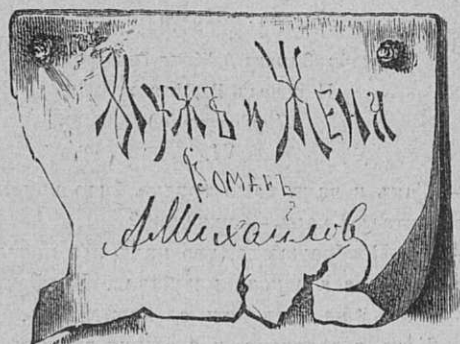 Мужъ и Жена
Романъ
А. Михайлов